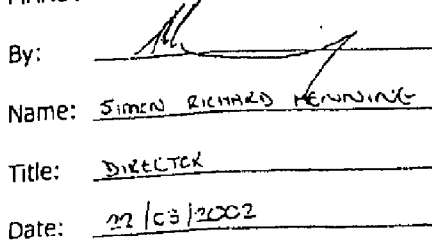 By:
Name: SIMON RICHARD HENNING
Title: DIRECTOR
Date: 22/03/2002